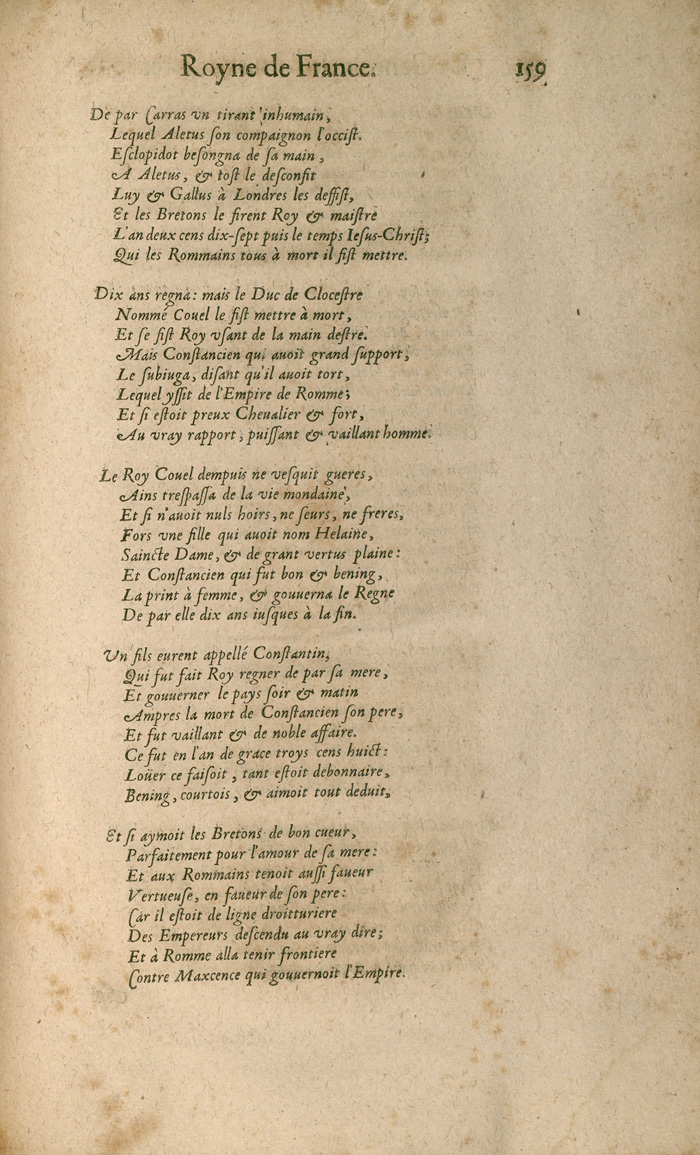 Royne de France. 159
De par Carras vn tirant inhumain,
Lequel Aletus ſon compaignon l'occiſt.
Eſclopidot beſongna de ſa main,
A Aletus, & toſt le desconfit
Luy & Gallus à Londres les deffiſt,
Et les Bretons le firent Roy & maiſtre
L'an deux cens dix-ſept puis le temps Ieſus-Chriſt;
Qui les Rommains tous à mort il fiſt mettre.
Dix ans regna: mais le Duc de Cloceſtre
Nommé Couel le fiſt mettre à mort,
Et ſe fiſt Roy vſant de la main deſtre.
Mais Conſtancien qui auoit grand ſupport,
Le ſubiuga, diſant qu'il auoit tort,
Lequel yſſit de l'Empire de Romme;
Et ſi eſtoit preux Cheualier & fort,
Au vray rapport, puiſſant & vaillant homme.
Le Roy Couel dempuis ne veſquit gueres,
Ains treſpaſſa de la vie mondaine,
Et ſi n'auoit nuls hoirs, ne ſeurs, ne freres,
Fors vne fille qui auoit nom Helaine,
Saincte Dame, & de grant vertus plaine:
Et Conſtancien qui fut bon & bening,
La print à femme, & gouuerna le Regne
De par elle dix ans iuſques à la fin.
Un fils eurent appellé Conſtantin,
Qui fut fait Roy regner de par ſa mere,
Et gouuerner le pays ſoir & matin
Ampres la mort de Conſtancien ſon pere,
Et fut vaillant & de noble affaire.
Ce fut en l'an de grace troys cens huict:
Loüer ce faiſoit, tant eſtoit debonnaire,
Bening, courtois, & aimoit tout deduit,
Et ſi aymoit les Bretons de bon cueur,
Parfaitement pour l'amour de ſa mere:
Et aux Rommains tenoit auſſi faueur
Vertueuſe, en faueur de ſon pere:
Car il eſtoit de ligne droitturiere
Des Empereurs deſcendu au vray dire;
Et à Romme alla tenir frontiere
Contre Maxcence qui gouuernoit l'Empire.